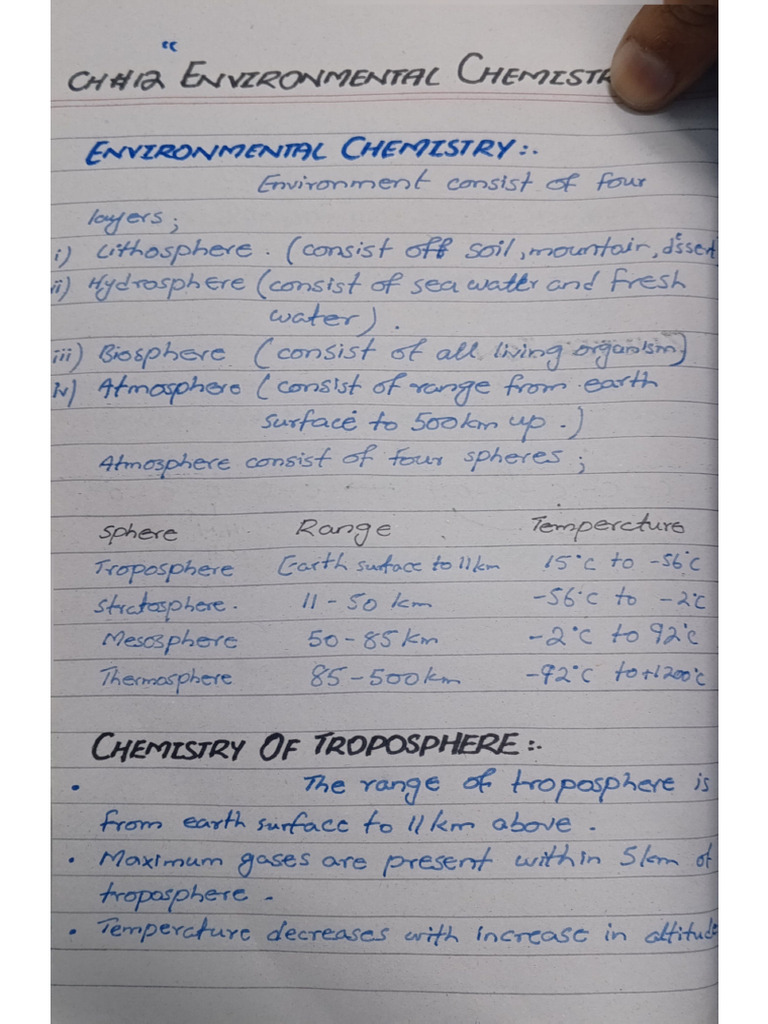 “
CH#12 ENVIRONMENTAL CHEMISTR
ENVIRONMENTAL CHEMISTRY:.
Environment consist of four
layers;
i) Lithosphere. (consist off soil, mountair,
ii) Hydrosphere (consist of sea water and fresh
water).
iii) Biosphere (consist of all living organism)
iv) Atmosphere (consist of range from earth
surface to 500km up.)
Atmosphere consist of four spheres;
Sphere Range Temperature
Troposphere Earth surface to 11km 15°C to -56°C
Stratosphere. 11-50 km -56°C to -2°C
Mesosphere 50-85km -2°C to 92°C
Thermosphere 85-500km -92°C to +1200°C
CHEMISTRY OF TROPOSPHERE:.
• The range of troposphere is
from earth surface to 11km above.
• Maximum gases are present within 5km of
troposphere.
• Temperature decreases with increase in altitude